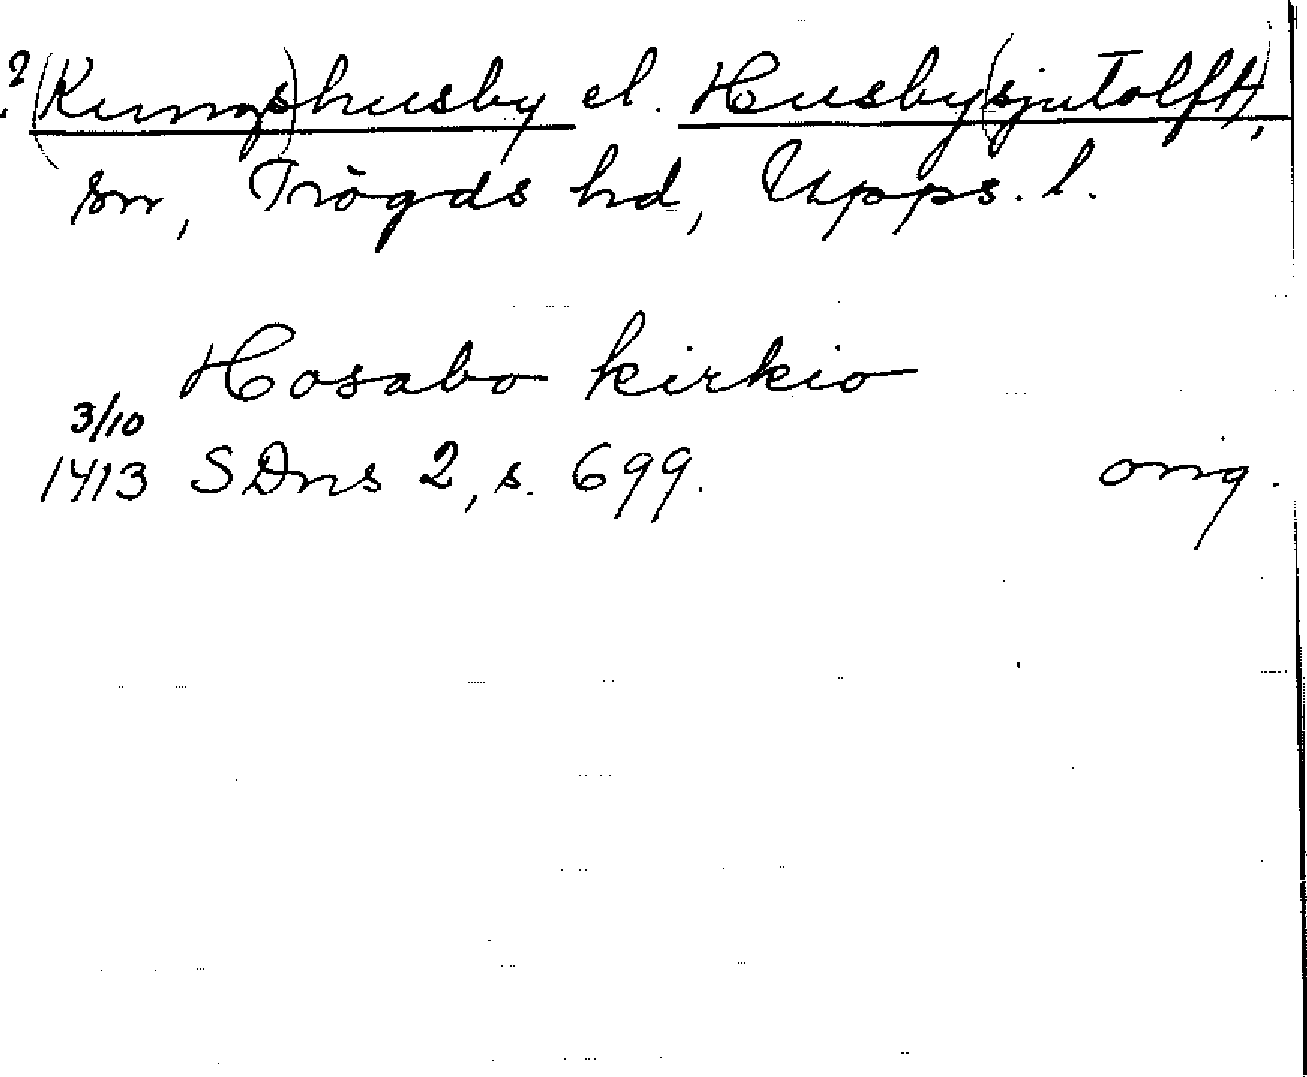 ? (Kungs)husby el. Husby(sjutolft),
sn, Trögds hd, Upps. l.
Hosabo kirkio
3/10
1413 SDns 2, s. 699. orig.